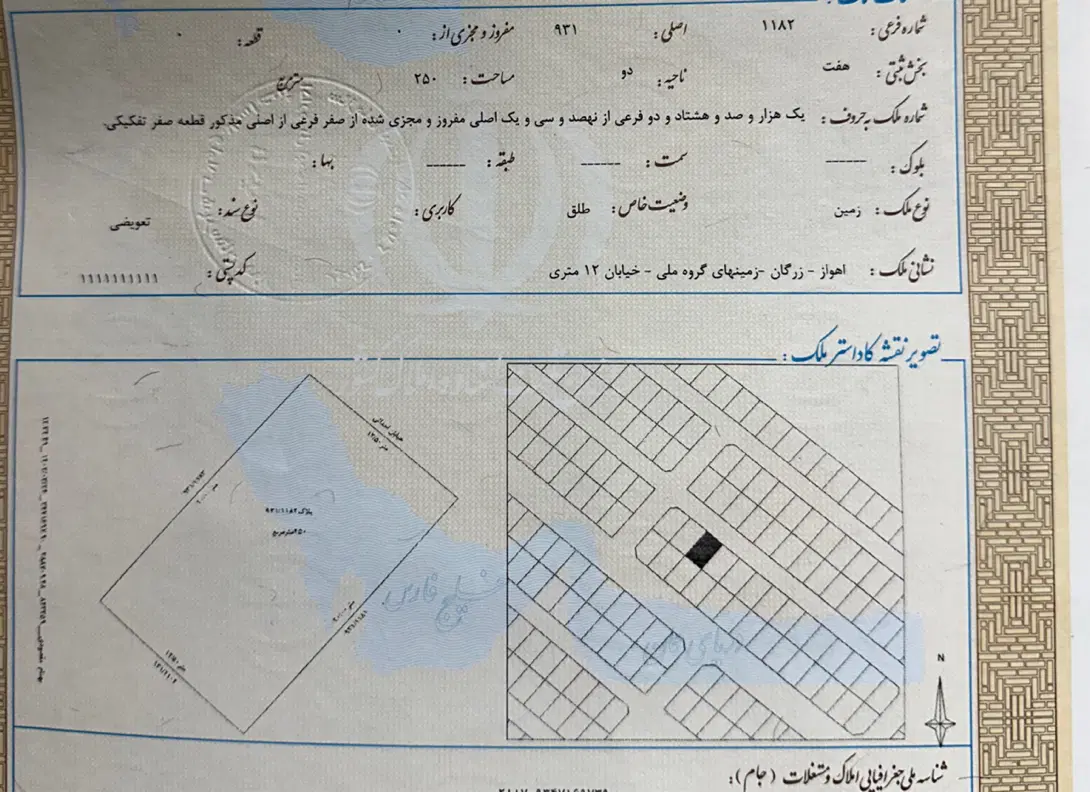 شماره فرعی: ۱۱۸۲ اصلی: ۹۳۱ مفروز و مجزی از: ۰ قطعه: ۰
بخش ثبتی: هفت ناحیه: دو مساحت: ۲۵۰ مترمربع
شماره ملک به حروف: یک هزار و صد و هشتاد و دو فرعی از نهصد و سی و یک اصلی مفروز و مجزی شده از صفر فرعی از اصلی مذکور قطعه صفر تفکیکی.
بلوک: ------ سمت: ------ طبقه: ------ بها:
نوع ملک: زمین وضعیت خاص: طلق کاربری: نوع سند: تعویضی
نشانی ملک: اهواز - زرگان -زمینهای گروه ملی - خیابان ۱۲ متری کد پستی: ۱۱۱۱۱۱۱۱۱۱
تصویر نقشه کاداستر ملک:
خیابان احداثی
۱۲/۵۰ متر
۹۳۱/۱۱۸۳
پلاک ۹۳۱/۱۱۸۲
۲۵۰مترمربع
۹۳۱/۱۱۸۱
۱۲/۵۰ متر
خلیج فارس
دریای
N
شناسه ملی جغرافیایی املاک و مستغلات (جام):